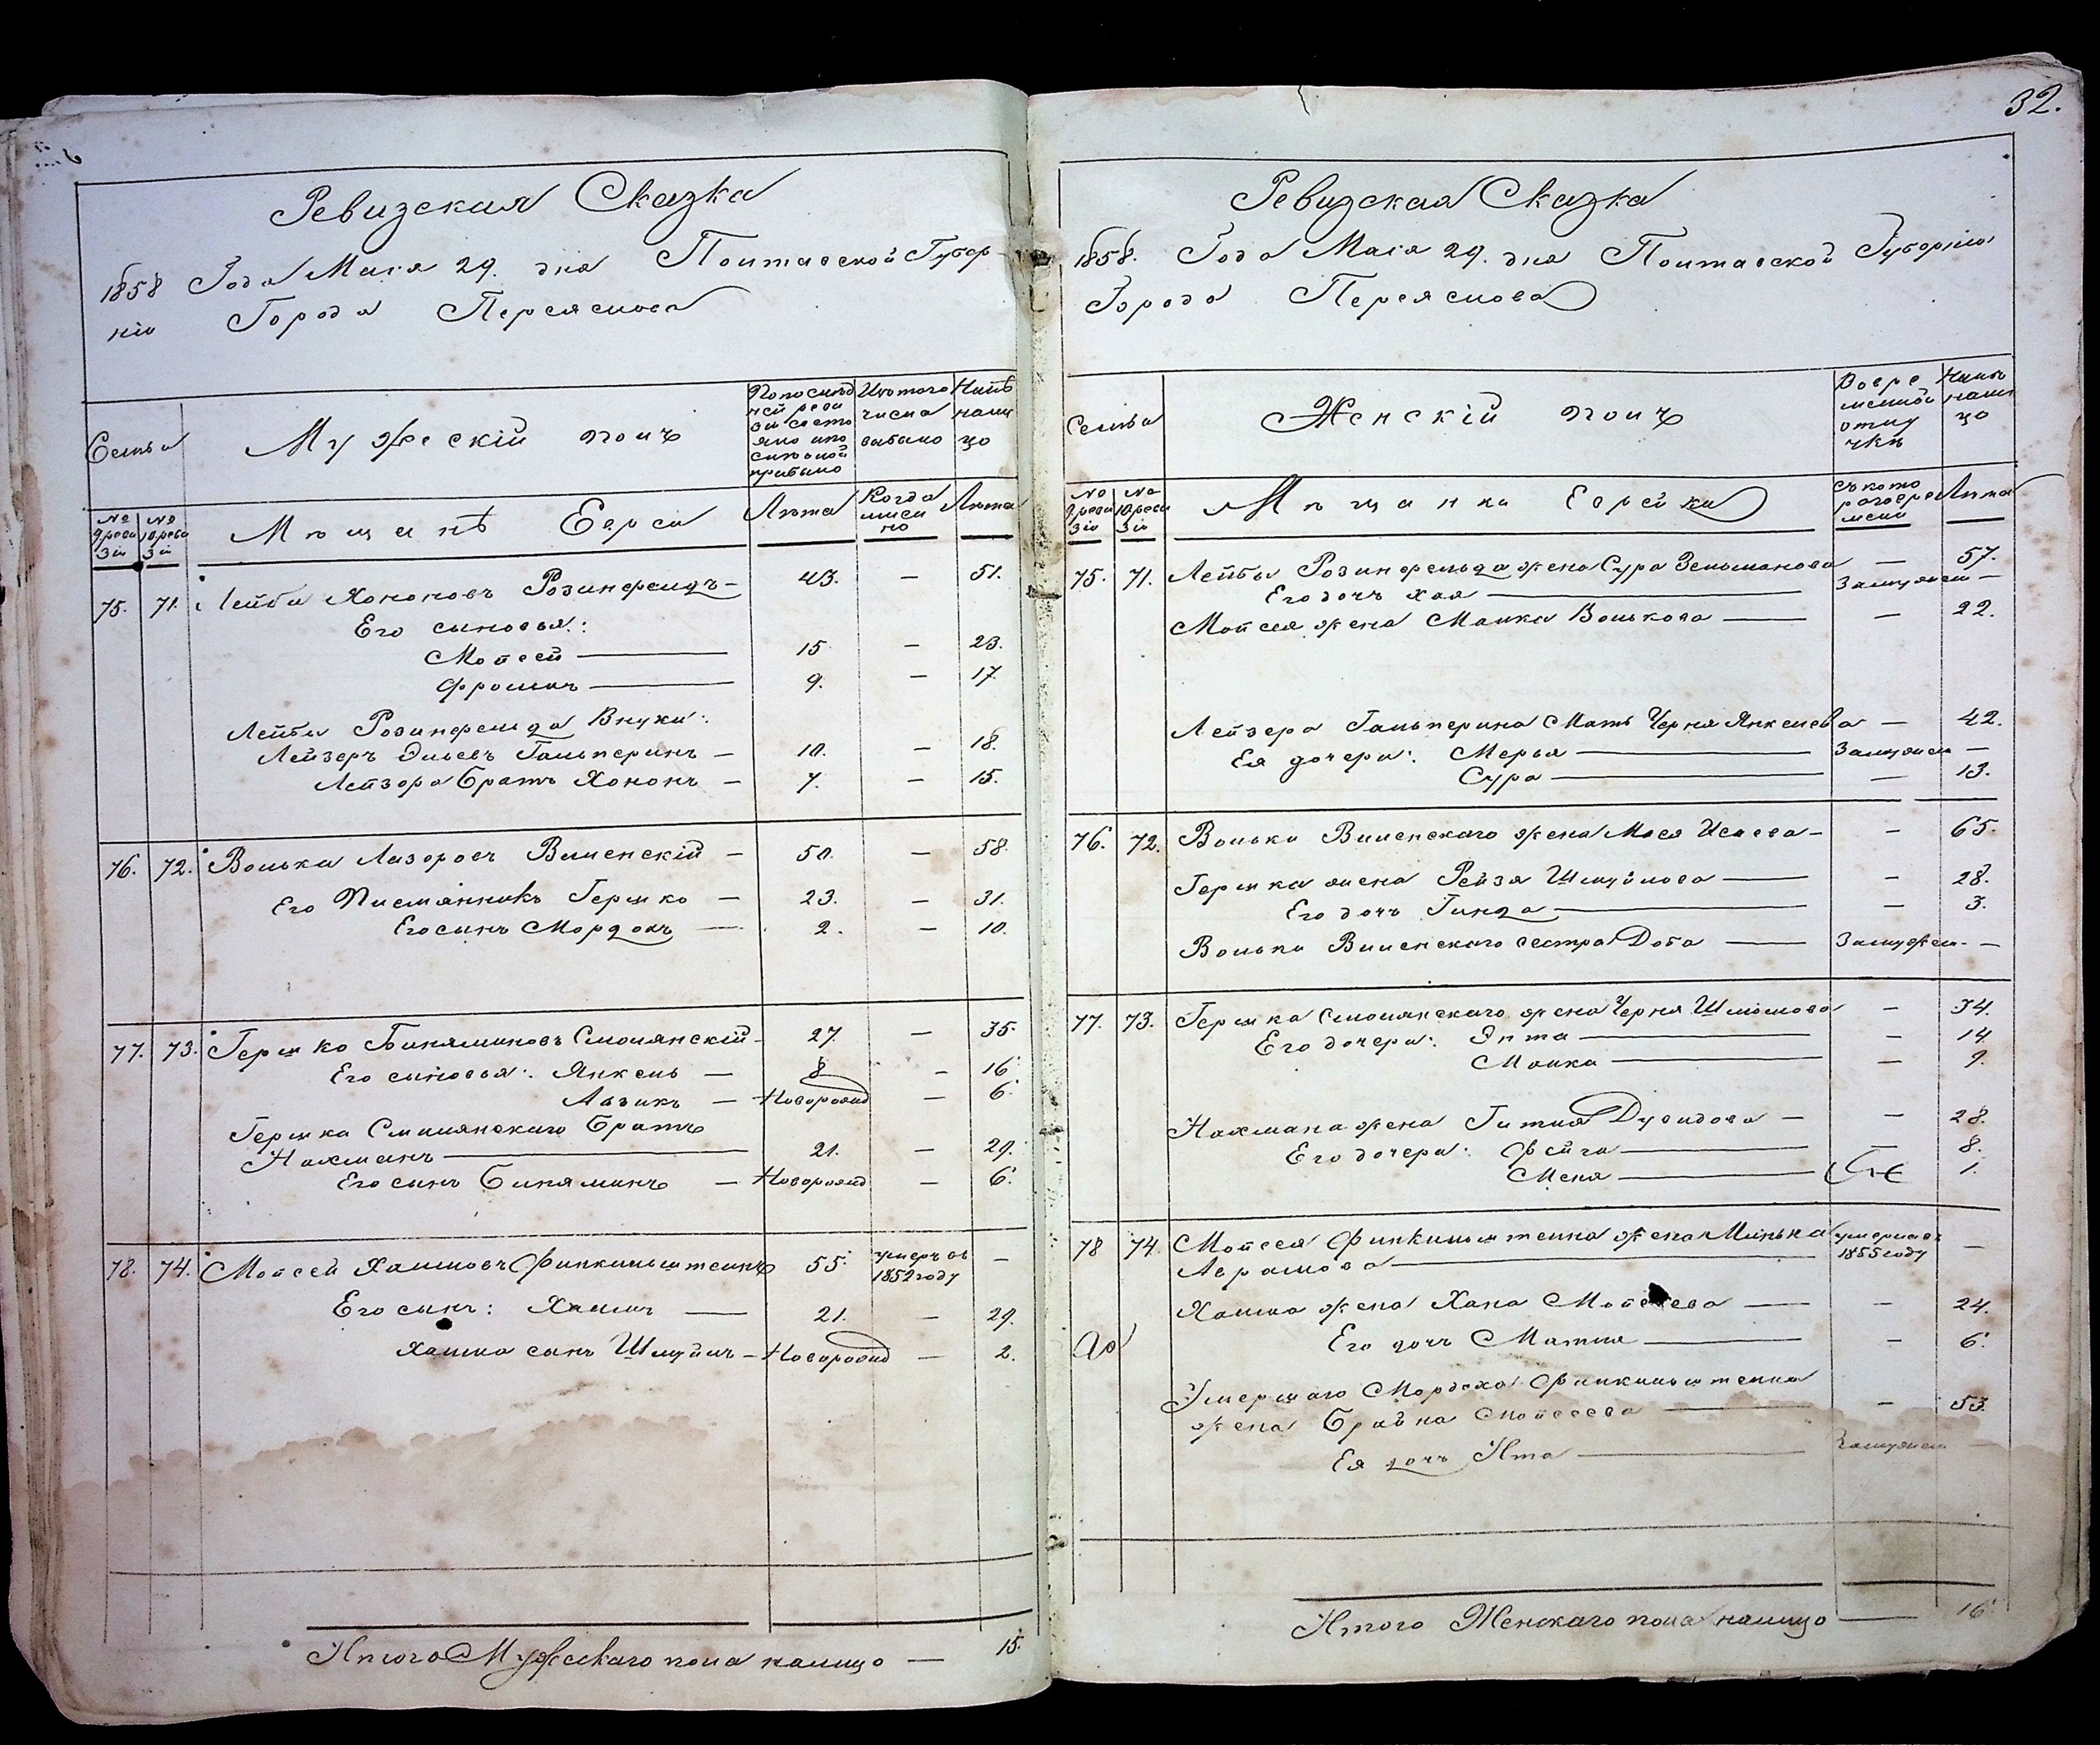 Ревизская Сказка
1858 Года Маія 29. дня Полтавской Губер-
ніи Города Переяслова
Семья
Мужескій полъ
По послѣд
ней реви
зіи состо
яло или
послѣ оной
прибыло
Изъ того
числа
выбыло
Нынѣ
нали
цо
№ 9 реви
зіи
№ 10 реви
зіи
Мѣщанѣ Евреи
Лѣта
Когда
имен
но
Лѣта
75. 71. Лейба Хононовъ Розинфельдъ — 43. — 51.
Его сыновья:
Мойсей — 15 — 23.
Фроимъ — 9. — 17.
Лейбы Розинфельда Внуки:
Лейзеръ Эльевъ Гальперинъ — 10. — 18.
Лейзера братъ Хононъ — 7. — 15.
76. 72. Волька Лазоровъ Виленскій — 50. — 58.
Его Племянникъ Гершко — 23. — 31.
Его сынъ Мордохъ — 2. — 10.
77. 73. Гершко Биняминовъ Смолянскій — 27. — 35.
Его сыновья: Янкель — 8 — 16
Айзикъ — Новорожд — 6.
Гершка Смолянскаго братъ
Нахманъ — 21. — 29.
Его сынъ Биняминъ — Новорожд — 6.
78. 74. Мойсей Хаимовъ Финкильштейнъ 55. умеръ въ 1852 году —
Его сынъ: Хаимъ — 21. — 29.
Хаима сынъ Шмуйлъ — Новорожд — 2.
Итого Мужескаго пола налицо — 15.
32.
Ревизская Сказка
1858. Года Маія 29. дня Полтавской Губерніи
Города Переяслова
Семья
Женскій полъ
Во вре
менной
отлу
чкѣ
Нынѣ
нали
цо
№ 9 реви
зіи
№ 10 реви
зіи
Мѣщанки Еврейки
Съ кото
раго вре
мени
Лѣта
75. 71. Лейбы Розинфельда жена Сура Зельманова — 57.
Его дочь Хая — Замужем —
Мойсея жена Малка Волькова — — 22.
Лейзера Гальперина Мать Черня Янкелева — 42.
Ея дочери: Мерья — Замужем —
Сура — — 13.
76. 72. Вольки Виленскаго жена Мася Исаева — — 65.
Гершка жена Рейзя Шмуйлова — — 28.
Его дочь Гинда — — 3.
Вольки Виленскаго сестра Доба — Замужем. —
77. 73. Гершка Смолянскаго жена Черня Шлиомова — 34.
Его дочери: Энта — — 14
Малка — — 9.
Нахмана жена Гитля Дувидова — — 28.
Его дочери: Фейга — — 8.
Меня — 1.
78 74. Мойсея Финкильштейна жена Минька умерла въ
Аврамова — 1855 году —
Хаима жена Хана Мойсеева — — 24.
Его дочь Матля — — 6.
Умершаго Мордоха Финкильштейна
жена Брайна Мойсеева — — 53.
Ея дочь Ита — Замужем —
Итого Женскаго пола налицо — 16